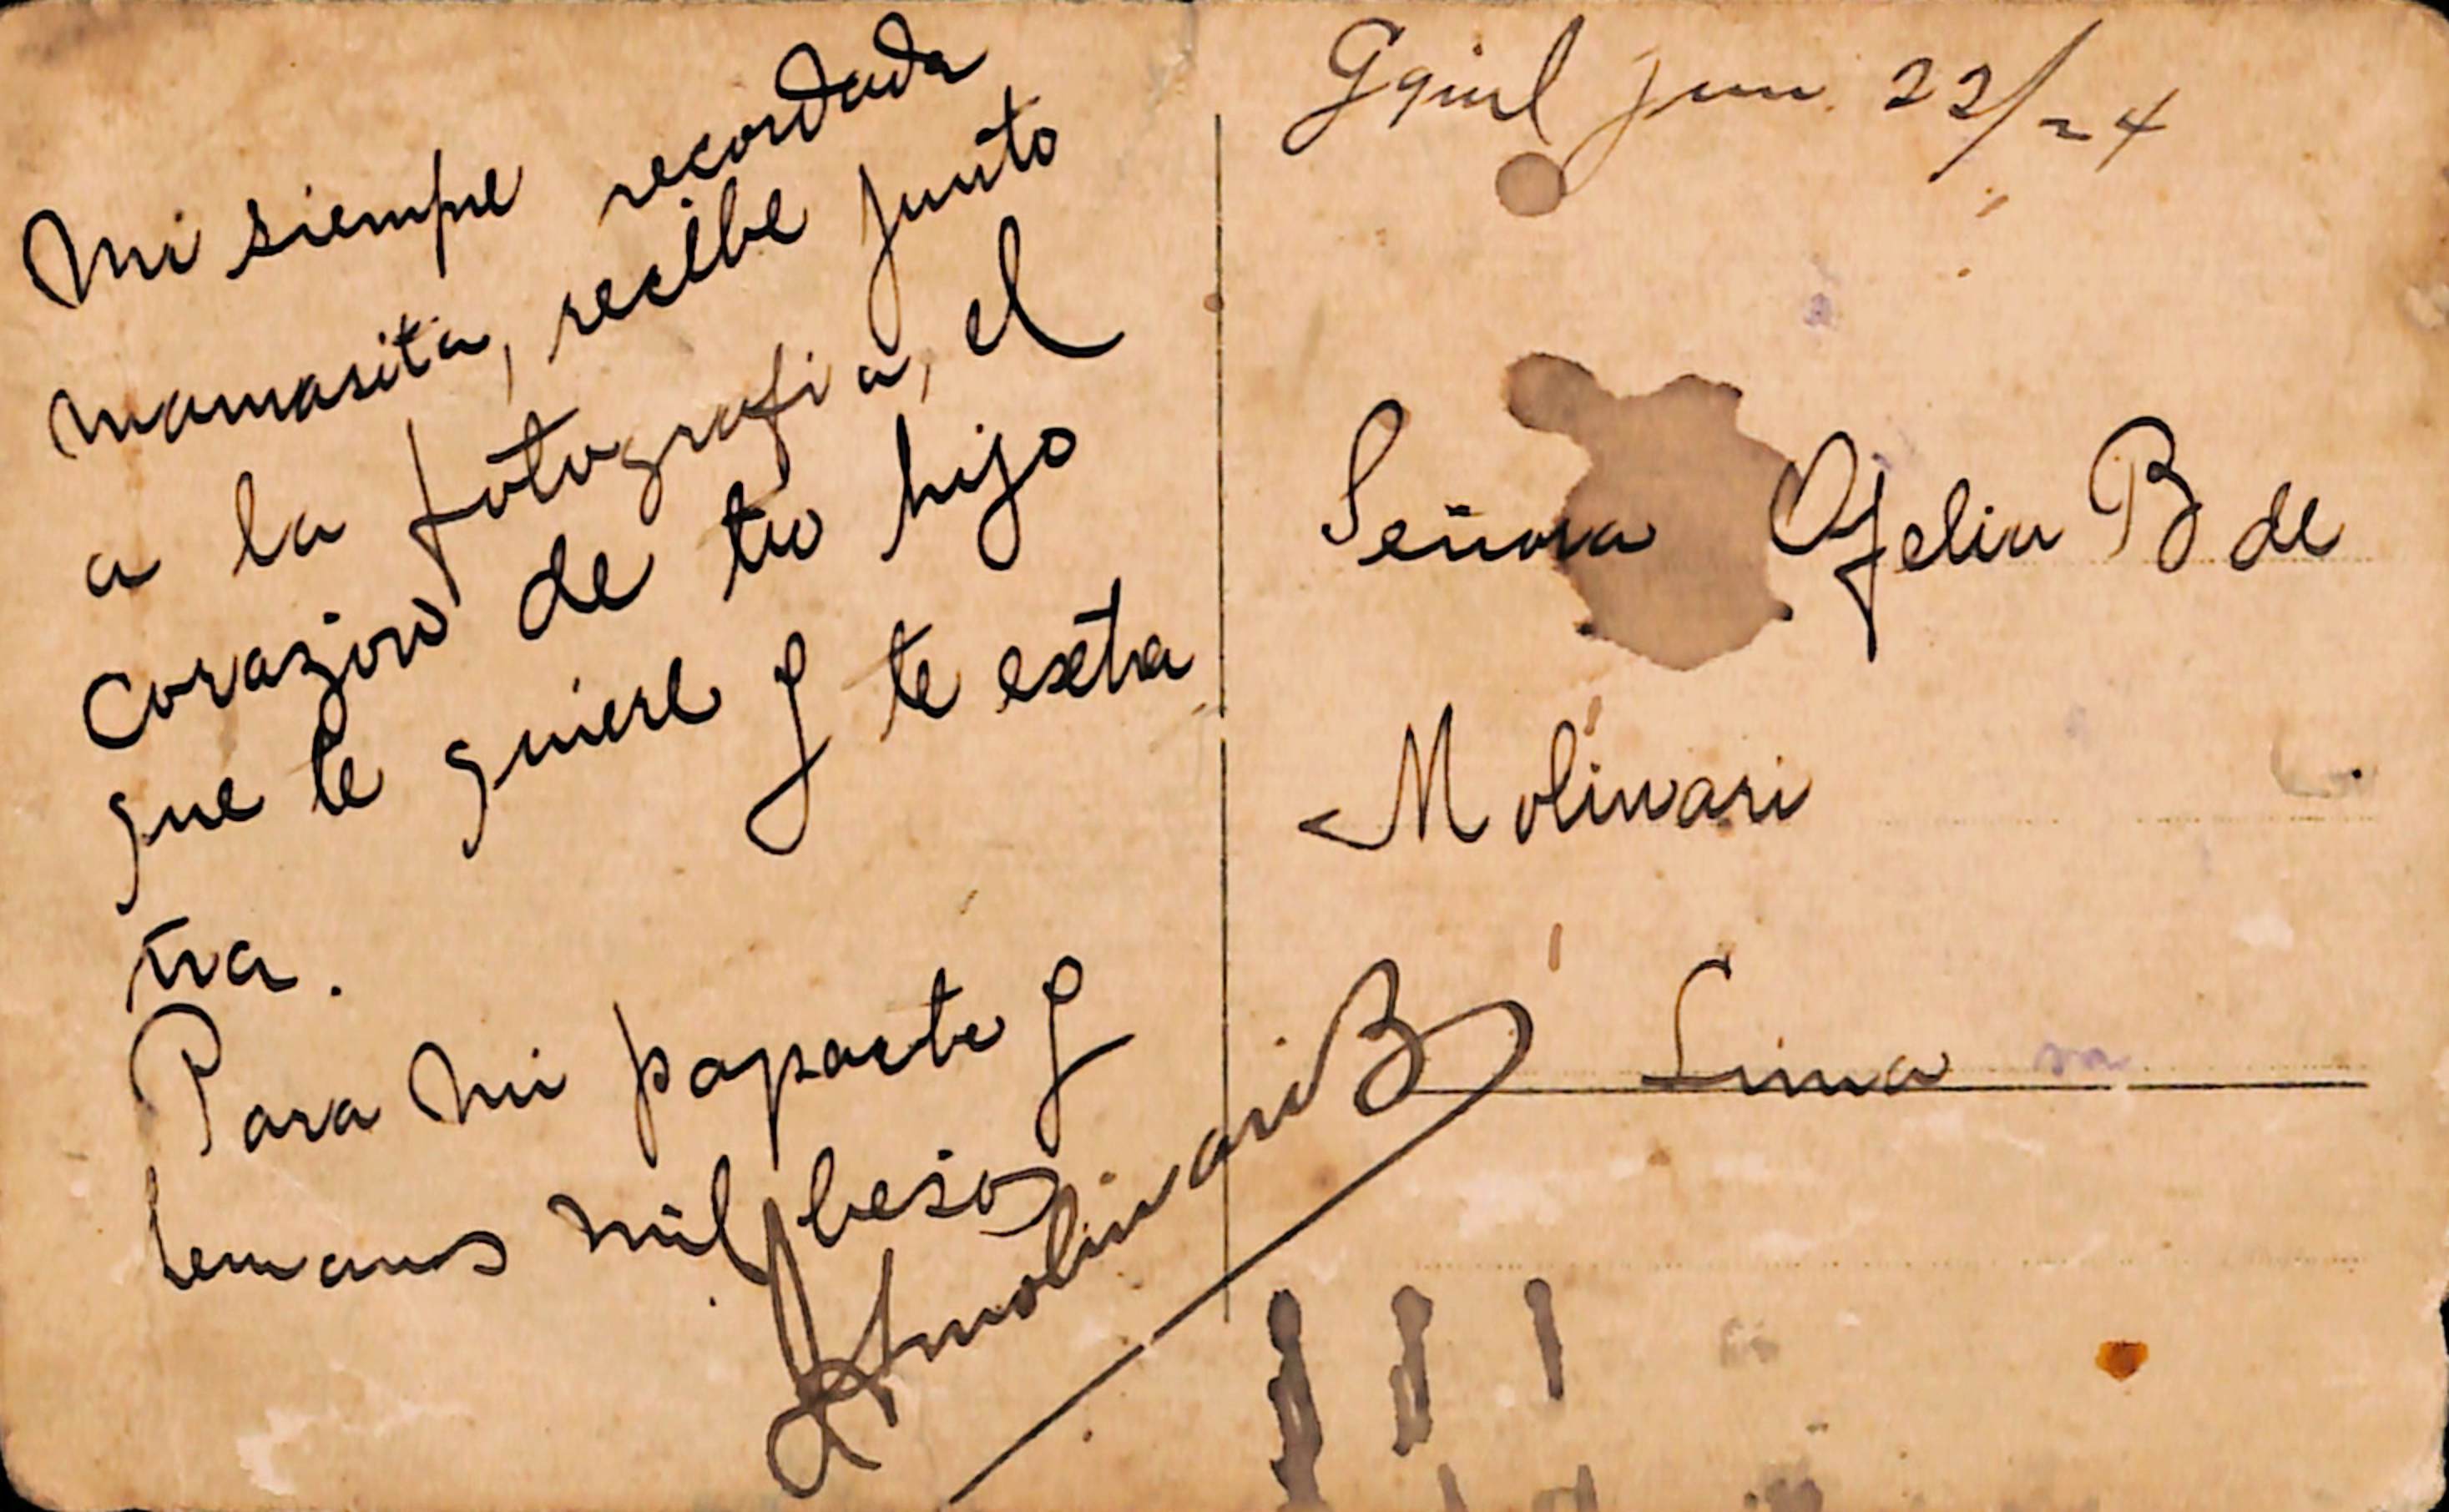 Mi siempre recordada
mamasita, recibe junto
a la fotografia, el
corazon de tu hijo
que te quiere y te extra
ña.
Para mi papacte y
hermanos mil besos
Molinari B
Gquil jun. 22/24
Señora Ofelia B de
Molinari
Lima